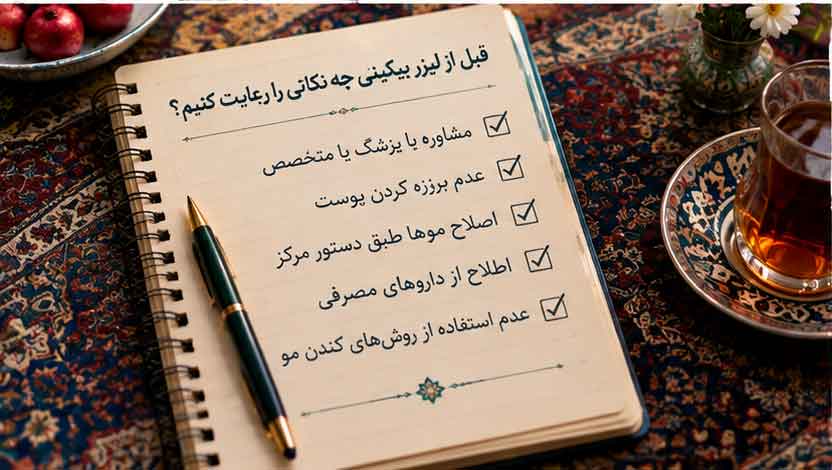 قبل از لیزر بیکینی چه نکاتی را رعایت کنیم؟
مشاوره با پزشگ یا متخصص
عدم برنزه کردن پوست
اصلاح موها طبق دستور مرکز
اطلاح از داروهای مصرفی
عدم استفاده از روش‌های کندن مو